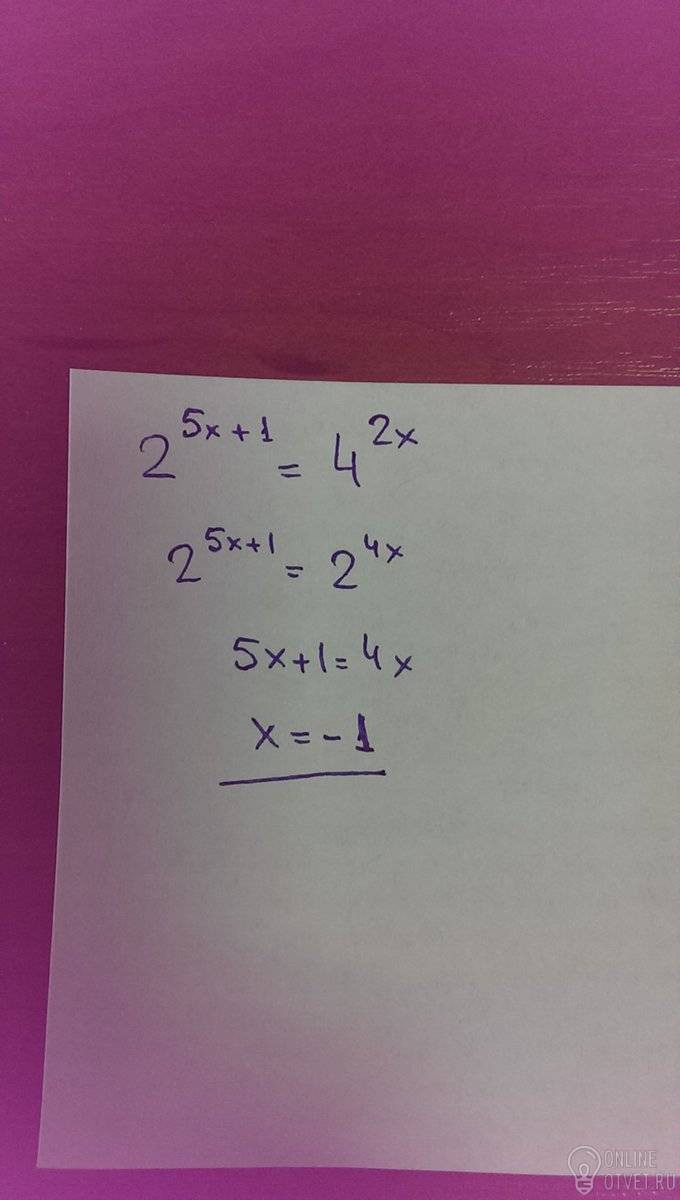 2^{5x+1} = 4^{2x}
2^{5x+1} = 2^{4x}
5x+1=4x
x=-1
ONLINE
OTVET.RU